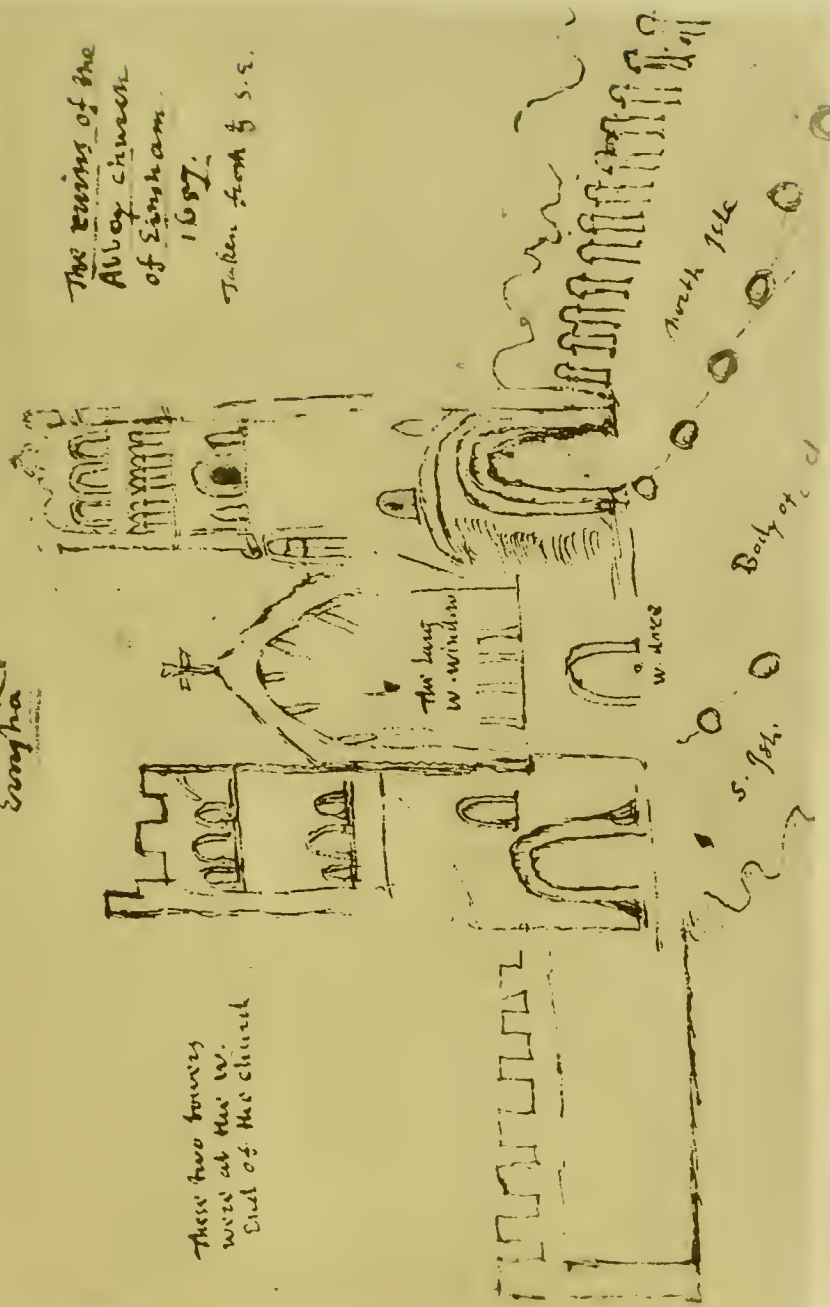 The ruins of the
Abbey church
of Einsham.
1657.
Taken from ye S.E.
These two towers
were at the W.
End of the church
The Larg
W. window
W. dore
North Isle
Body of
S. Isle.